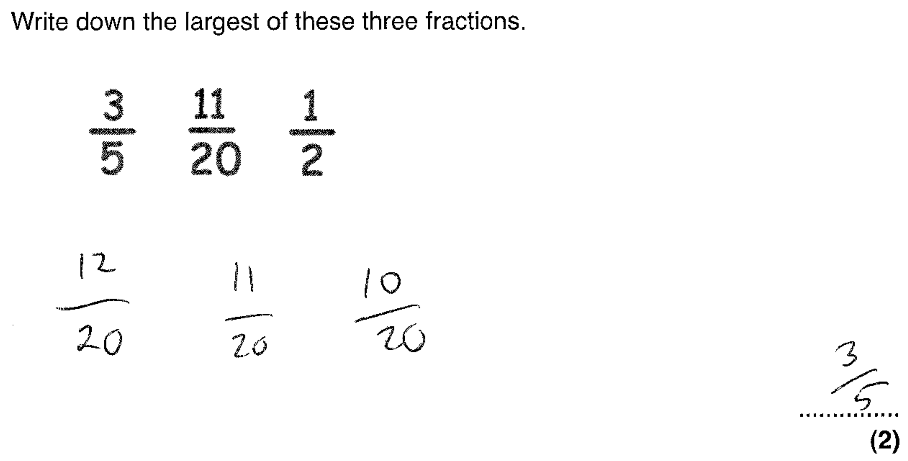 Write down the largest of these three fractions.
3/5 11/20 1/2
12/20 11/20 10/20
3/5
(2)